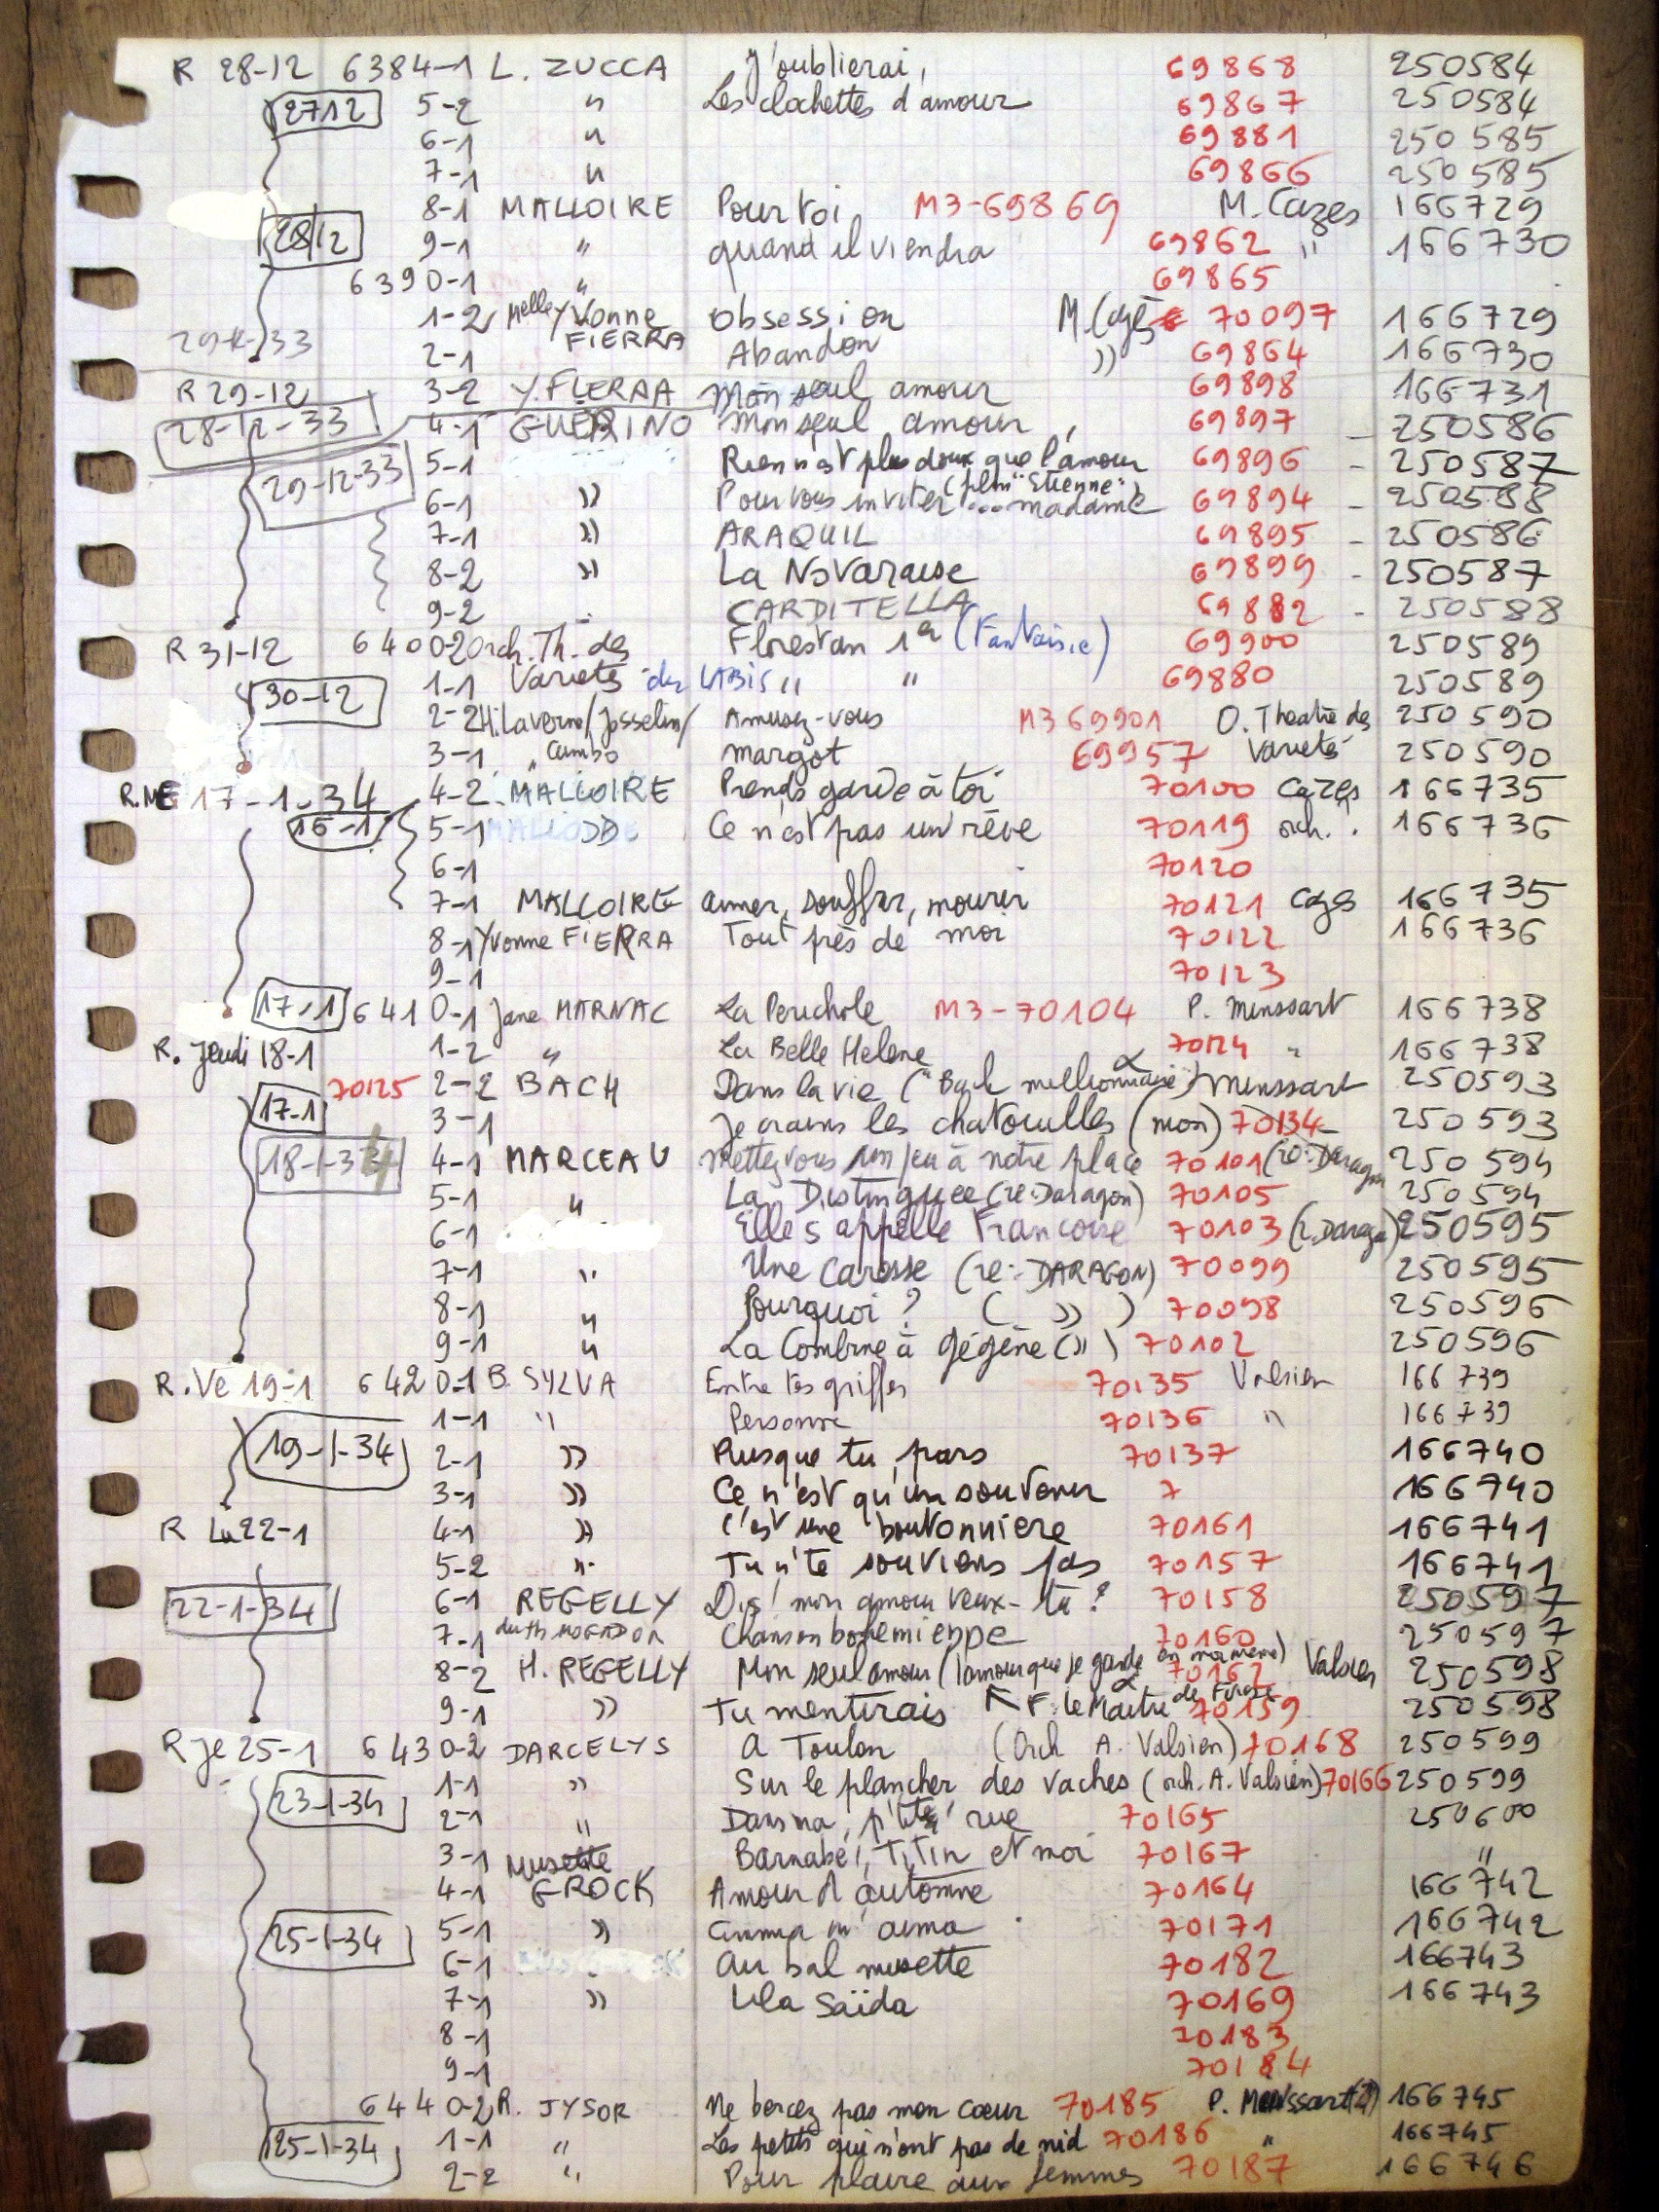 R 28-12 6384-1 L. ZUCCA J'oublierai, 69868 250584
2712 5-2 " Les clochettes d'amour 69867 250584
6-1 " 69881 250585
7-1 " 69866 250585
8-1 MALLOIRE Pour toi M3-69869 M. Cazes 166729
28/12 9-1 " quand il viendra 69862 " 166730
6390-1 " 69865
1-2 Melle Yvonne FIERRA Obsession M Cazes 70097 166729
29-12-33 2-1 Abandon )) 69864 166730
R 29-12 3-2 Y. FIERRA Mon seul amour 69898 166731
28-12-33 4-1 GUERINO Mon seul amour, 69897 - 250586
29-12-33 5-1 Rien n'est plus doux que l'amour 69896 - 250587
6-1 )) Pour vous inviter... madame (film "Etienne") 69894 - 250588
7-1 )) ARAQUIL 69895 - 250586
8-2 )) La Novaraise 69899 - 250587
9-2 CARDITELLA 69882 - 250588
R 31-12 6400-2 Orch. Th. des Florestan 1er (Fantaisie) 69900 250589
30-12 1-1 Varietés dir LABIS " " 69880 250589
2-2 H. Laverne/Josselin/ Amusez-vous M3 69901 O. Theatre des 250590
3-1 " Cambo margot 69957 Varietés 250590
R.ME 17-1-34 4-2 MALLOIRE Prends garde à toi 70100 Cazes 166735
16-1 5-1 Ce n'est pas un rêve 70119 orch. 166736
6-1 70120
7-1 MALLOIRE aimer, souffrir, mourir 70121 Cazes 166735
8-1 Yvonne FIERRA Tout près de moi 70122 166736
9-1 70123
17-1 6410-1 Jane MARNAC La Perichole M3-70104 P. Minssart 166738
R. Jeudi 18-1 1-2 " La Belle Helene 70124 " 166738
70125 2-2 BACH Dans la vie ("Bach millionnaire") Minssart 250593
17-1 3-1 Je crains les chatouilles (mon) 70134 250593
18-1-34 4-1 MARCEAU Mettez vous un peu à notre place 70101 (re: Daragon 250594
5-1 " La Distinguée (re: Daragon) 70105 250594
6-1 Elle s'appelle Francoise 70103 (r. Daragon) 250595
7-1 " Une Carosse (re: DARAGON) 70099 250595
8-1 " Pourquoi? ( )) ) 70098 250596
9-1 " La Combine à gégène ( )) ) 70102 250596
R. Ve 19-1 6420-1 B. SYLVA Entre tes griffes 70135 Valsien 166739
1-1 " Personne 70136 " 166739
19-1-34 2-1 )) Puisque tu pars 70137 166740
3-1 )) Ce n'est qu'un souvenir 7 166740
R Lu 22-1 4-1 )) C'est une boutonniere 70161 166741
5-2 ". Tu n'te souviens pas 70157 166741
22-1-34 6-1 REGELLY Dis! mon amour veux-tu? 70158 250597
7-1 du th MOGADOR Chanson bohemienne 70160 250597
8-2 H. REGELLY Mon seul amour (l'amour que je garde en moi meme) 70162 Valsien 250598
9-1 )) Tu mentirais F. le Maitre de Forge 70159 250598
R je 25-1 6430-2 DARCELYS A Toulon (Orch A. Valsien) 70168 250599
1-1 )) Sur le plancher des vaches (orch. A. Valsien) 70166 250599
23-1-34 2-1 " Dans ma p'tite rue 70165 250600
3-1 Barnabé, Titin et moi 70167 "
4-1 Musette GROCK Amour d'automne 70164 166742
25-1-34 5-1 )) 70171 166742
6-1 Au bal musette 70182 166743
7-1 )) Lila Saïda 70169 166743
8-1 70183
9-1 70184
6440-2 R. JYSOR Ne bercez pas mon cœur 70185 P. Minssart 166745
25-1-34 1-1 " Les petits qui n'ont pas de nid 70186 " 166745
2-2 " Pour plaire aux femmes 70187 166746